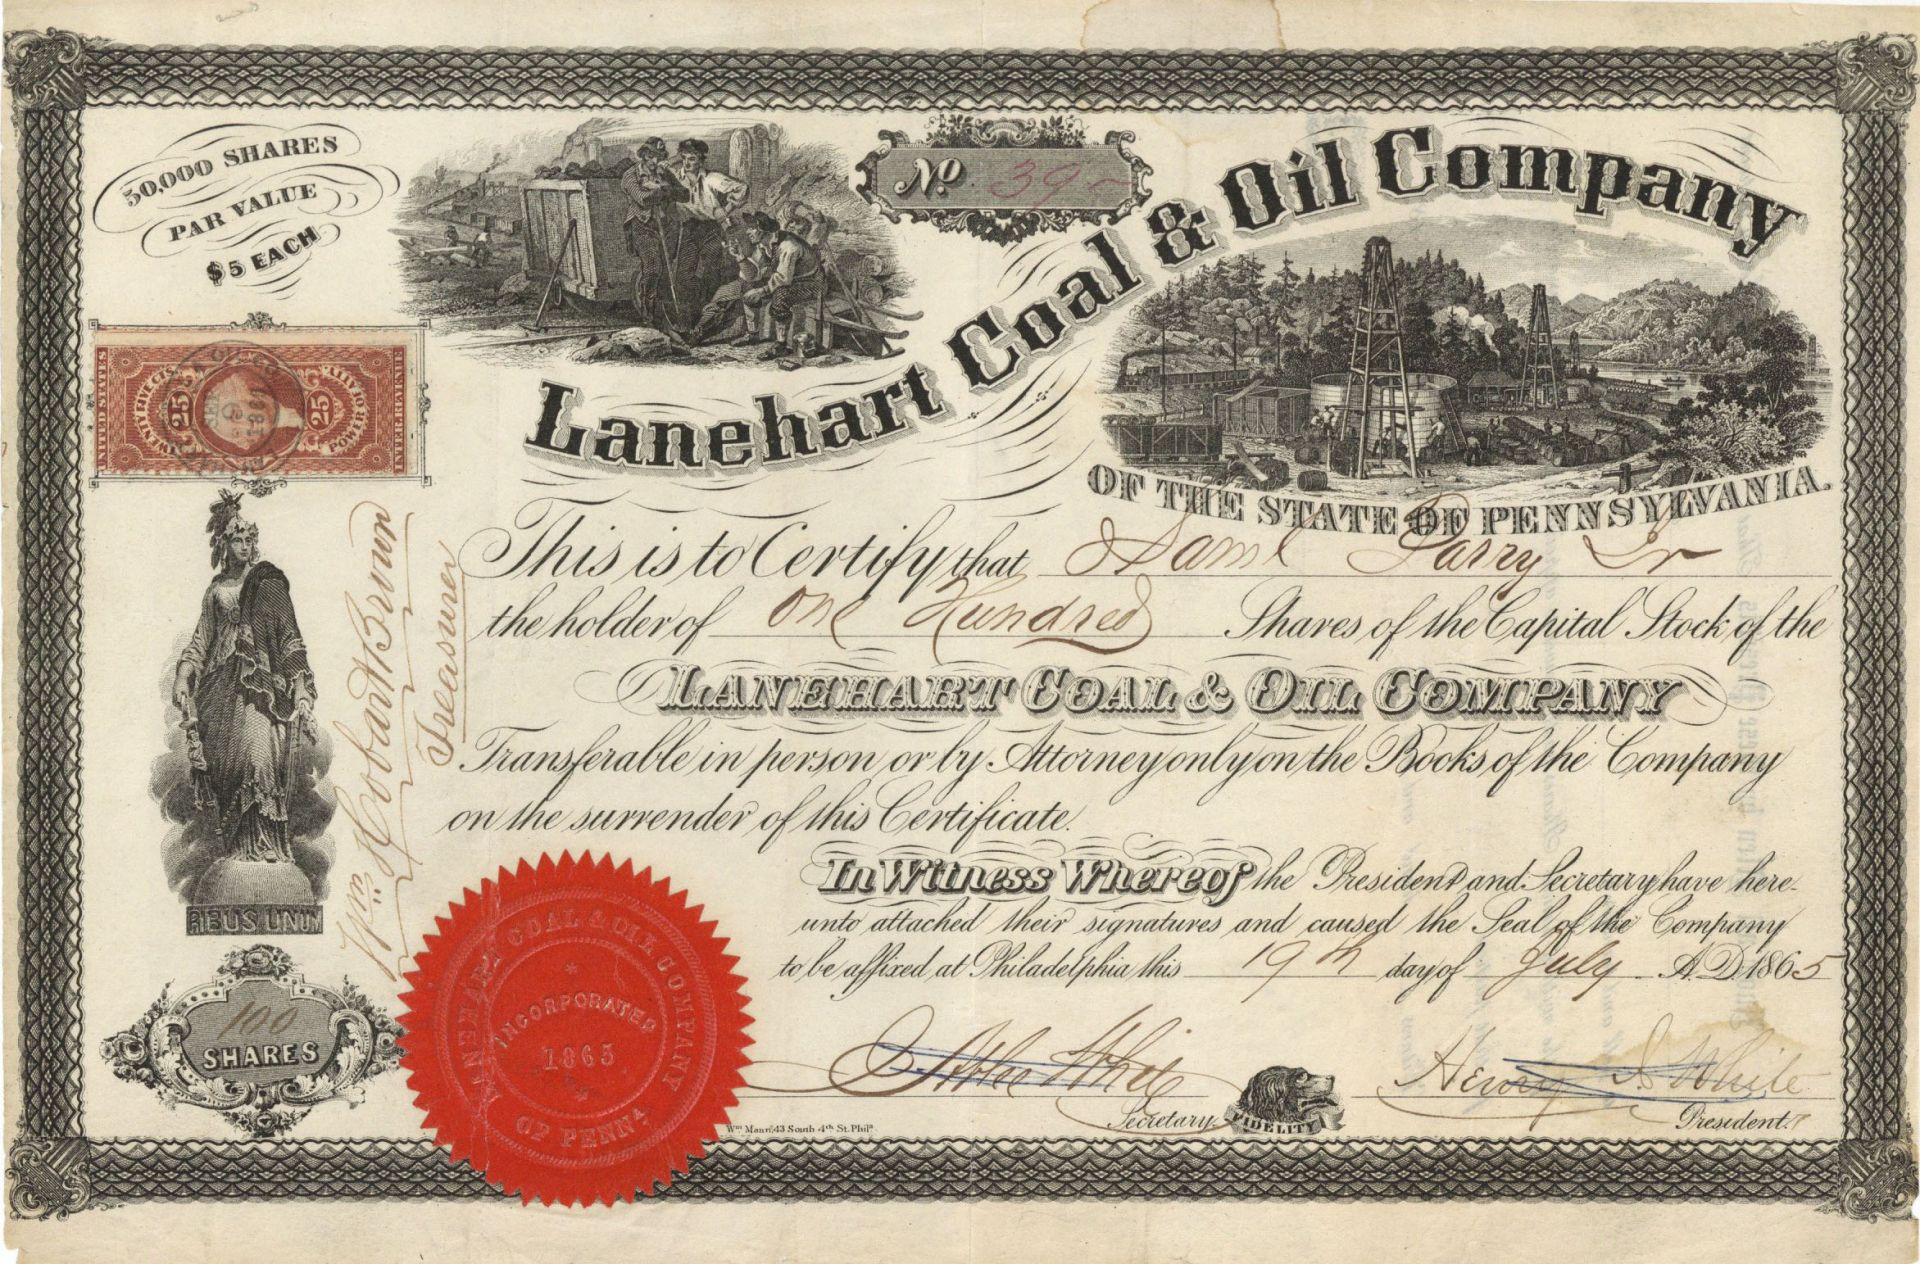 50,000 SHARES
PAR VALUE
$5 EACH
No. 39
Lanehart Coal & Oil Company
OF THE STATE OF PENNSYLVANIA.
UNITED STATES
INTER. REVENUE
25
25
POWER OF ATT'Y.
This is to Certify that Saml Parry Jr
the holder of One Hundred Shares of the Capital Stock of the
LANEHART COAL & OIL COMPANY
Transferable in person or by Attorney only on the Books of the Company
on the surrender of this Certificate.
In Witness Whereof the President and Secretary have here-
unto attached their signatures and caused the Seal of the Company
to be affixed at Philadelphia this 19th day of July A.D. 1865
Wm. Hobart Brown
Treasurer
RIBUS UNUM
100
SHARES
LANEHART COAL & OIL COMPANY
INCORPORATED
1865
OF PENNA.
White
Secretary
FIDELITY
Henry S. White
President.
Wm. Mann, 43 South 4th St. Phila.